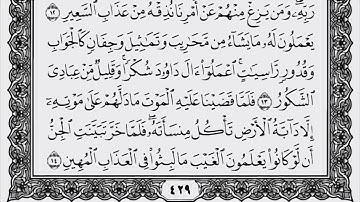 رَبِّهِۦ وَمَن يَزِغْ مِنْهُمْ عَنْ أَمْرِنَا نُذِقْهُ مِنْ عَذَابِ ٱلسَّعِيرِ ١٢
يَعْمَلُونَ لَهُۥ مَا يَشَآءُ مِن مَّحَٰرِيبَ وَتَمَٰثِيلَ وَجِفَانٍ كَٱلْجَوَابِ
وَقُدُورٍ رَّاسِيَٰتٍ ٱعْمَلُوٓا۟ ءَالَ دَاوُۥدَ شُكْرًا وَقَلِيلٌ مِّنْ عِبَادِىَ
ٱلشَّكُورُ ١٣ فَلَمَّا قَضَيْنَا عَلَيْهِ ٱلْمَوْتَ مَا دَلَّهُمْ عَلَىٰ مَوْتِهِۦٓ
إِلَّا دَآبَّةُ ٱلْأَرْضِ تَأْكُلُ مِنسَأَتَهُۥ فَلَمَّا خَرَّ تَبَيَّنَتِ ٱلْجِنُّ
أَن لَّوْ كَانُوا۟ يَعْلَمُونَ ٱلْغَيْبَ مَا لَبِثُوا۟ فِى ٱلْعَذَابِ ٱلْمُهِينِ ١٤
٤٢٩